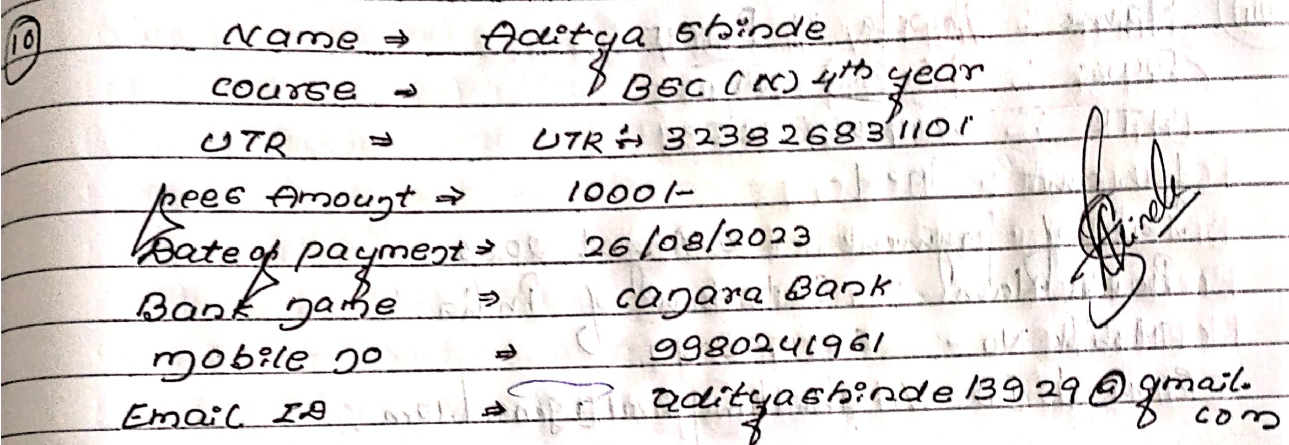 10
Name ⇒ Aditya Shinde
course → BSC (N) 4th year
UTR ⇒ UTR :- 323826831101
Fees Amount ⇒ 1000/-
Date of payment ⇒ 26/08/2023
Bank name ⇒ canara Bank
mobile no ⇒ 9980241961
Email ID ⇒ adityashinde13929@gmail.
com
Shinde